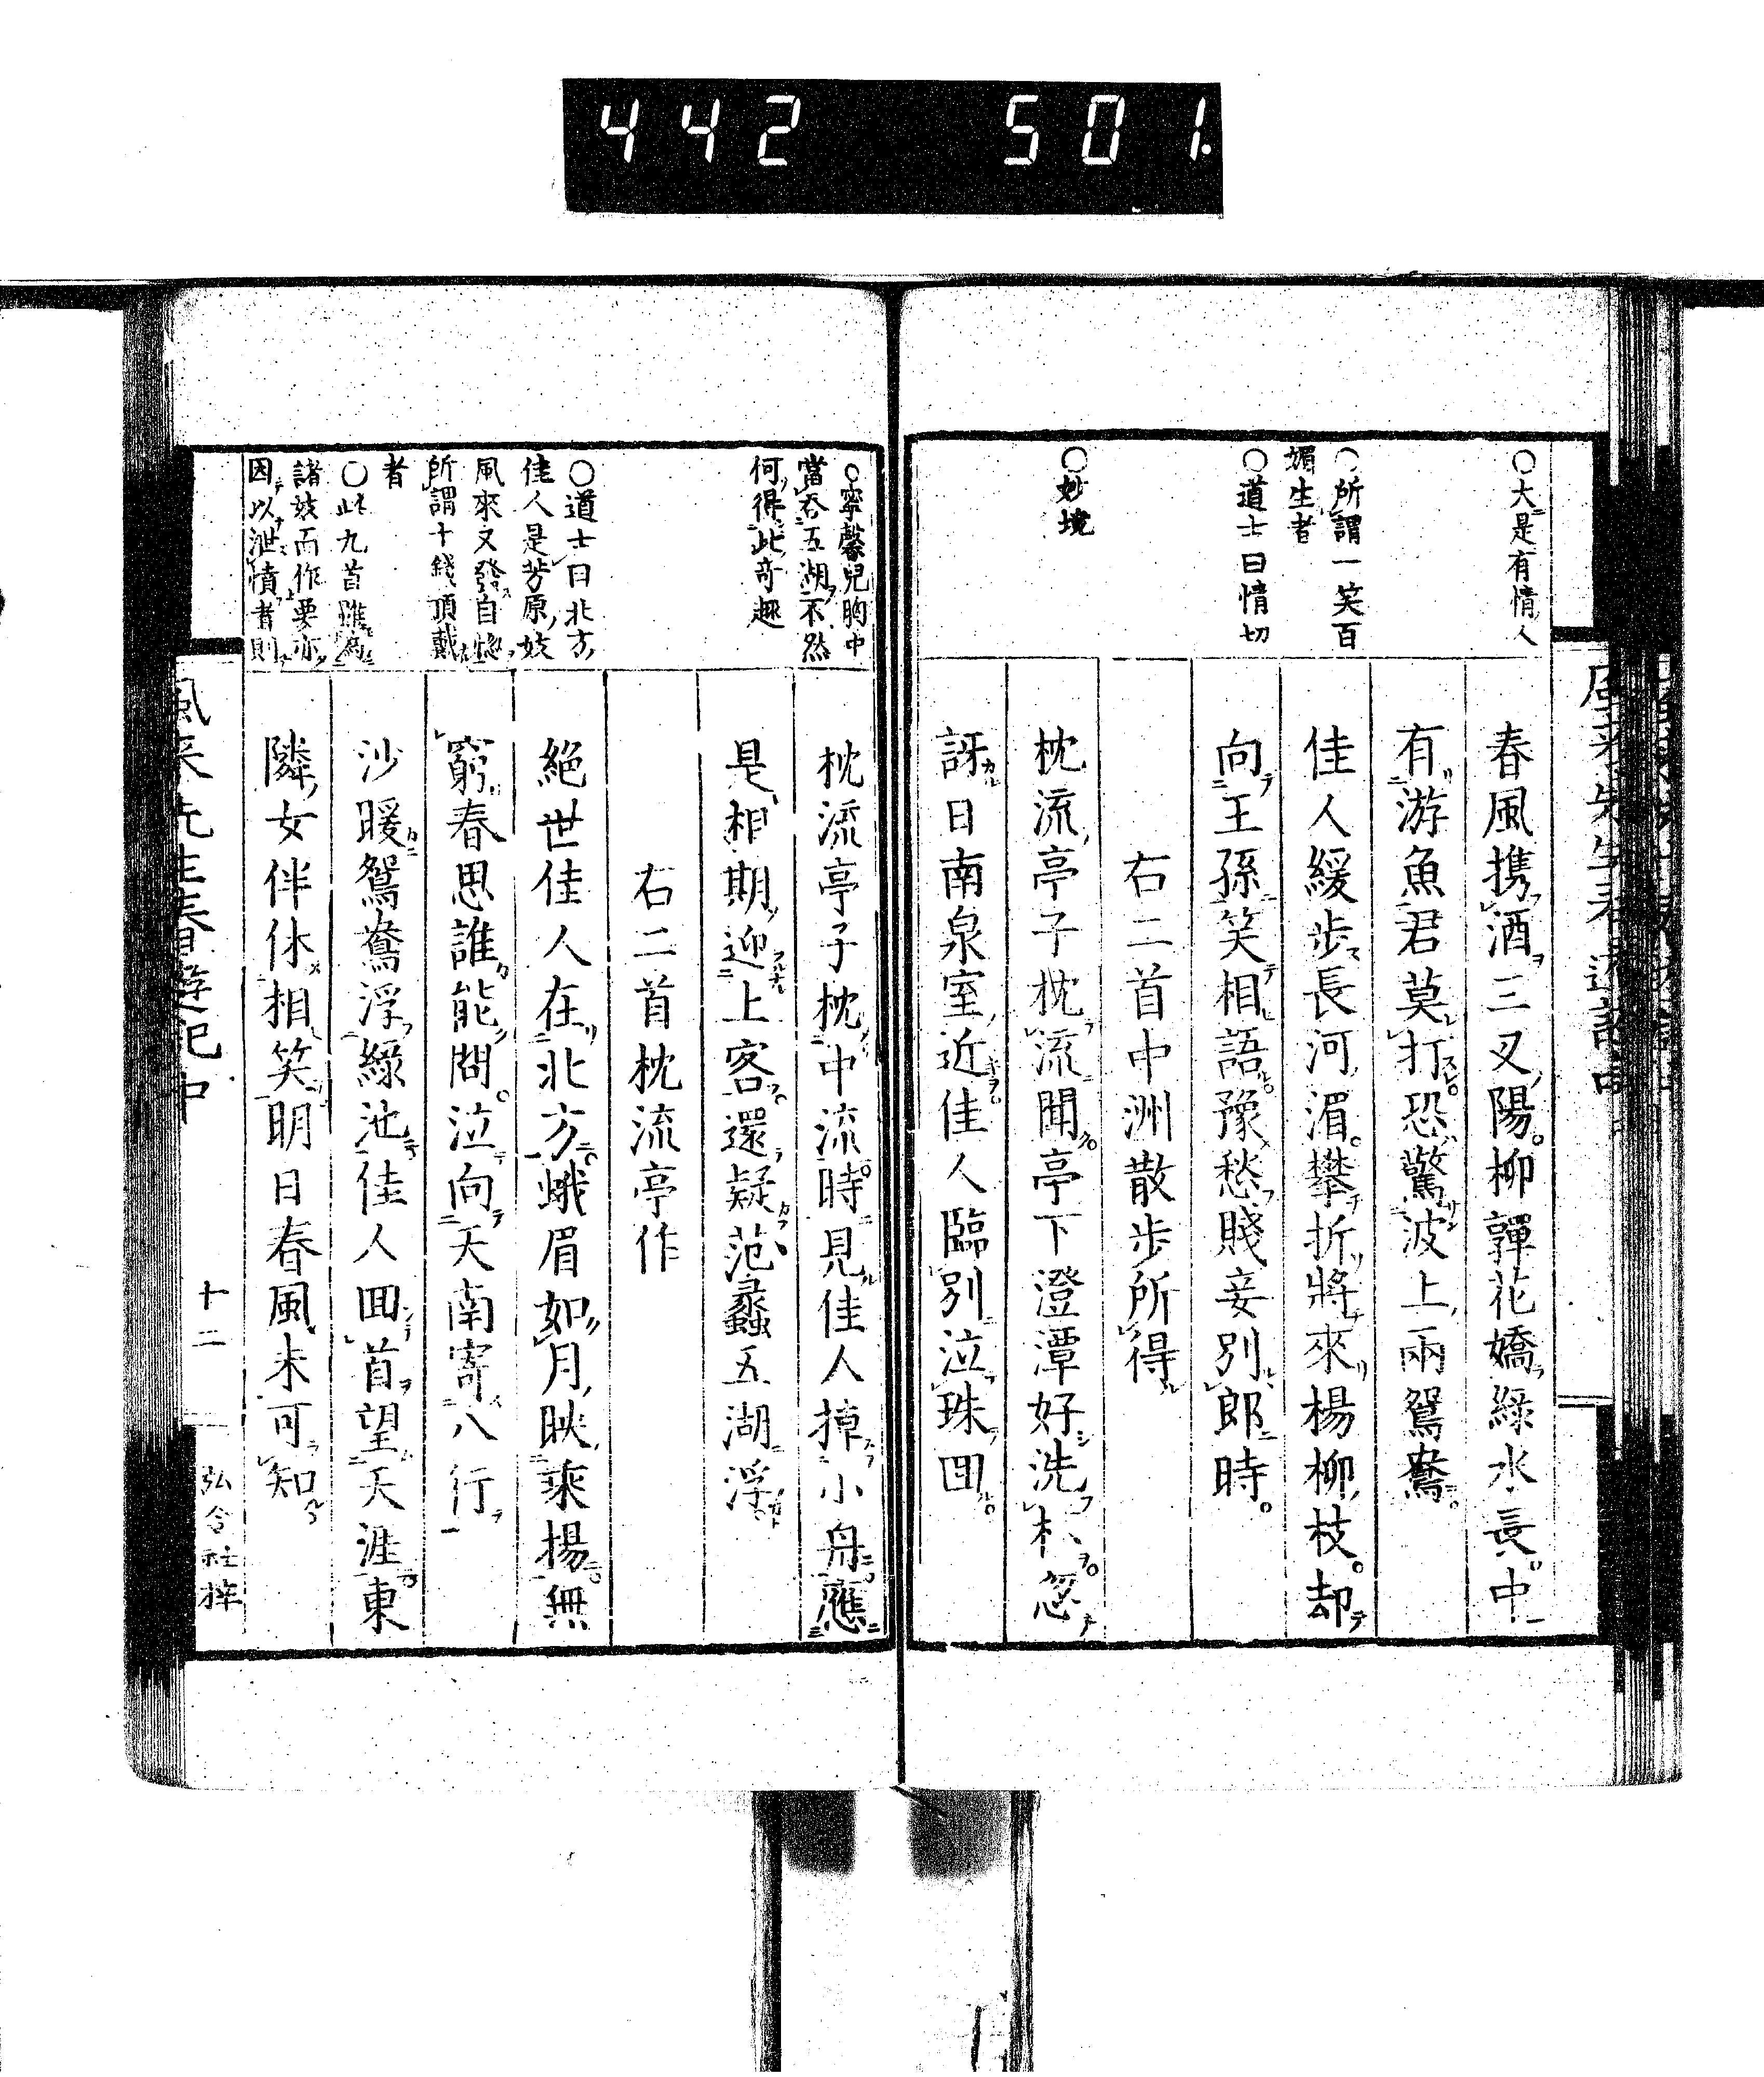 442 501.
○大是有情人
○所謂一笑百
媚生者
○道士曰情切
○妙境
春風携酒三叉陽柳嚲花嬌綠水長中
有游魚君莫打恐驚波上兩鴛鴦
佳人緩步長河湄攀折將來楊柳枝却
向王孫笑相語豫愁賤妾別郎時
右二首中洲散步所得
枕流亭子枕流開亭下澄潭好洗杯忽
訝日南泉室近佳人臨別泣珠回
○寧馨兒胸中
當吞五湖不然
何得此奇趣
○道士曰北方
佳人是芳原妓
風來又發自惚
所謂十錢頂戴
者
○此九首雖爲
諸妓而作要亦
因以泄憤者則
枕流亭子枕中流時見佳人掉小舟應
是相期迎上客還疑范蠡五湖浮
右二首枕流亭作
絕世佳人在北方蛾眉如月映乘楊無
窮春思誰能問泣向天南寄八行
沙暖鴛鴦浮綠池佳人回首望天涯東
隣女伴休相笑明日春風未可知
風來先生春遊記中
十二
弘令社梓